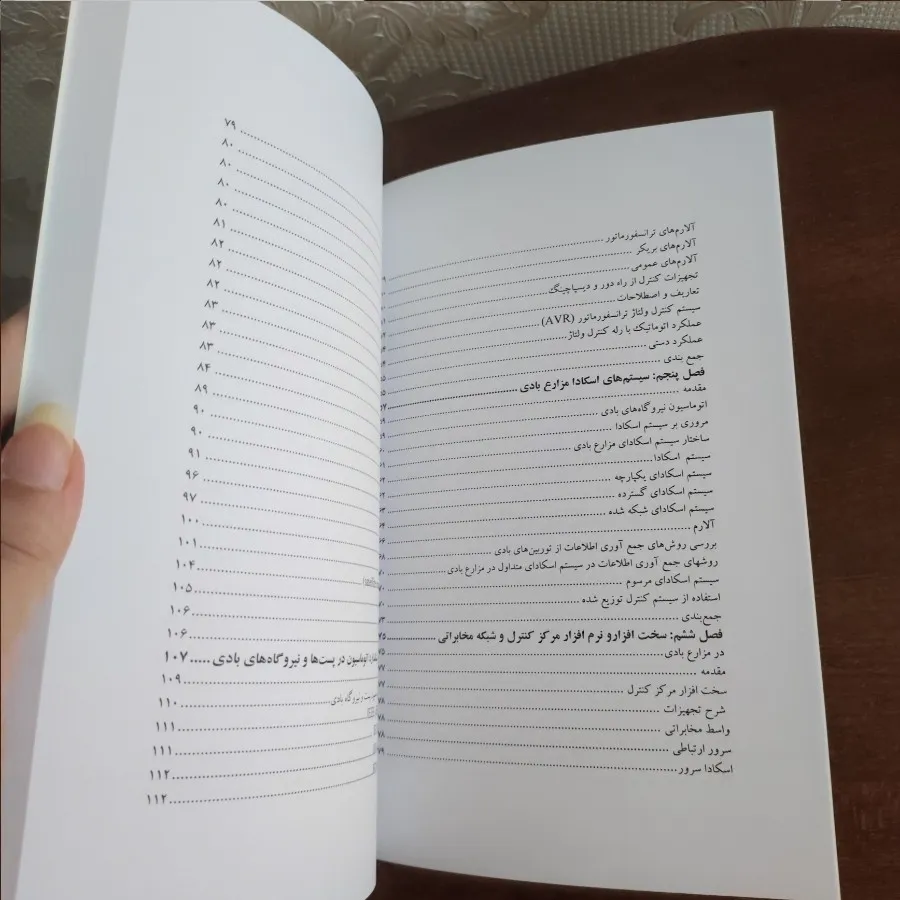 آلارم‌های ترانسفورماتور
آلارم‌های بریکر
آلارم‌های عمومی
تجهیزات کنترل از راه دور و دیسپاچینگ
تعاریف و اصطلاحات
سیستم کنترل ولتاژ ترانسفورماتور (AVR)
عملکرد اتوماتیک با رله کنترل ولتاژ
عملکرد دستی
جمع بندی
فصل پنجم: سیستم‌های اسکادا مزارع بادی
مقدمه
اتوماسیون نیروگاه‌های بادی
مروری بر سیستم اسکادا
ساختار سیستم اسکادای مزارع بادی
سیستم اسکادا
سیستم اسکادای یکپارچه
سیستم اسکادای گسترده
سیستم اسکادای شبکه شده
آلارم
بررسی روش‌های جمع آوری اطلاعات از توربین‌های بادی
روشهای جمع آوری اطلاعات در سیستم اسکادای متداول در مزارع بادی
سیستم اسکادای مرسوم
استفاده از سیستم کنترل توزیع شده
جمع‌بندی
فصل ششم: سخت افزارو نرم افزار مرکز کنترل و شبکه مخابراتی ..... ۷۵
در مزارع بادی ..... ۷۵
مقدمه ..... ۷۷
سخت افزار مرکز کنترل ..... ۷۷
شرح تجهیزات ..... ۷۸
واسط مخابراتی ..... ۷۸
سرور ارتباطی ..... ۷۸
اسکادا سرور ..... ۷۹
۷۹
۸۰
۸۰
۸۰
۸۰
۸۱
۸۲
۸۲
۸۲
۸۳
۸۳
۸۳
۸۴
۸۹
۹۰
۹۰
۹۱
۹۶
۹۷
۱۰۰
۱۰۱
۱۰۴
۱۰۵
۱۰۶
۱۰۶
اتوماسیون در پست‌ها و نیروگاه‌های بادی ..... ۱۰۷
۱۰۹
پست و نیروگاه بادی ..... ۱۱۰
۱۱۱
۱۱۱
۱۱۲
۱۱۲